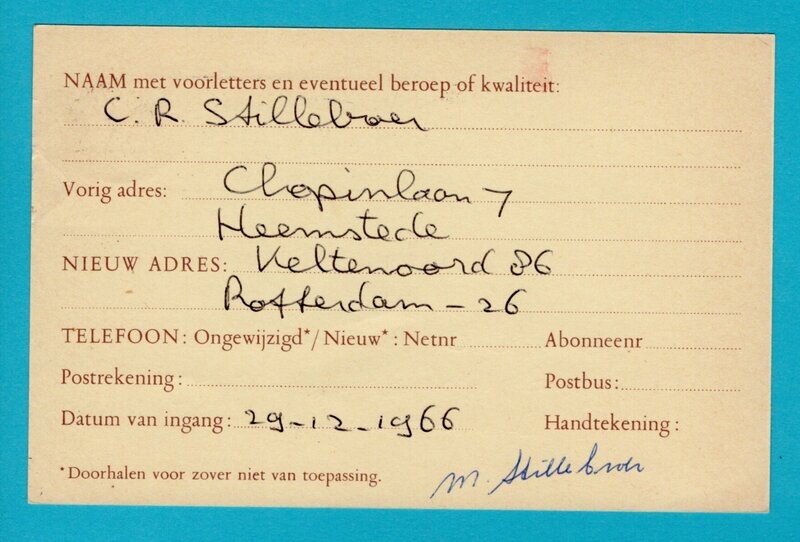 NAAM met voorletters en eventueel beroep of kwaliteit:
C. R. Stilleboer
Vorig adres: Chopinlaan 7
Heemstede
NIEUW ADRES: Keltenoord 86
Rotterdam - 26
TELEFOON: Ongewijzigd*/Nieuw*: Netnr Abonneenr
Postrekening: Postbus:
Datum van ingang: 29-12-1966 Handtekening:
*Doorhalen voor zover niet van toepassing. M. Stilleboer